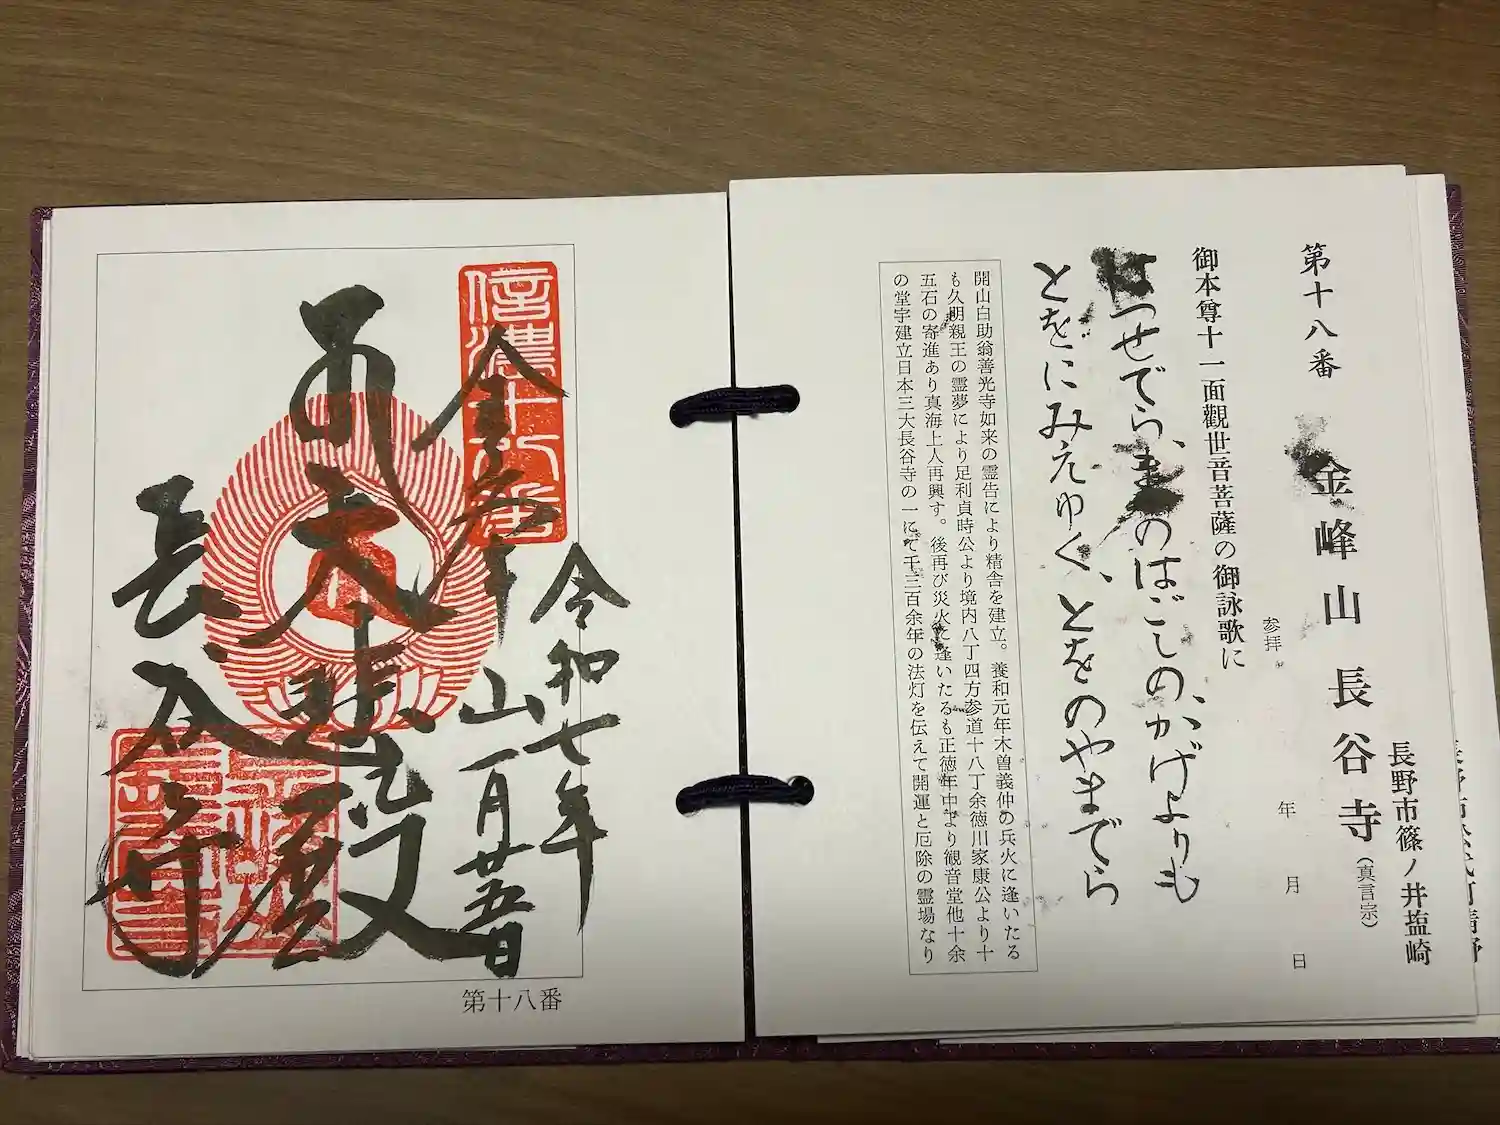 長野市篠ノ井塩崎
第十八番
金峰山長谷寺(真言宗)
参拝 年 月 日
御本尊十一面觀世音菩薩の御詠歌に
はつせでら、まのはごしの、かげよりも
とをにみえゆく、とをのやまでら
開山白助翁善光寺如来の霊告により精舎を建立。養和元年木曽義仲の兵火に逢いたる
も久明親王の霊夢により足利貞時公より境内八丁四方参道十八丁余徳川家康公より十
五石の寄進あり真海上人再興す。後再び災火に逢いたるも正徳年中より観音堂他十余
の堂宇建立日本三大長谷寺の一にて千三百余年の法灯を伝えて開運と厄除の霊場なり
令和七年
一月廿五日
信濃十八番
金峯山
大悲殿
長谷寺
第十八番